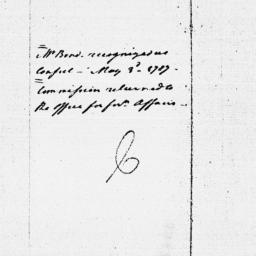 Mr Bond. recognized as
Consul - May 3d. 1787.
Commission returned to
the Office for forn. Affairs -